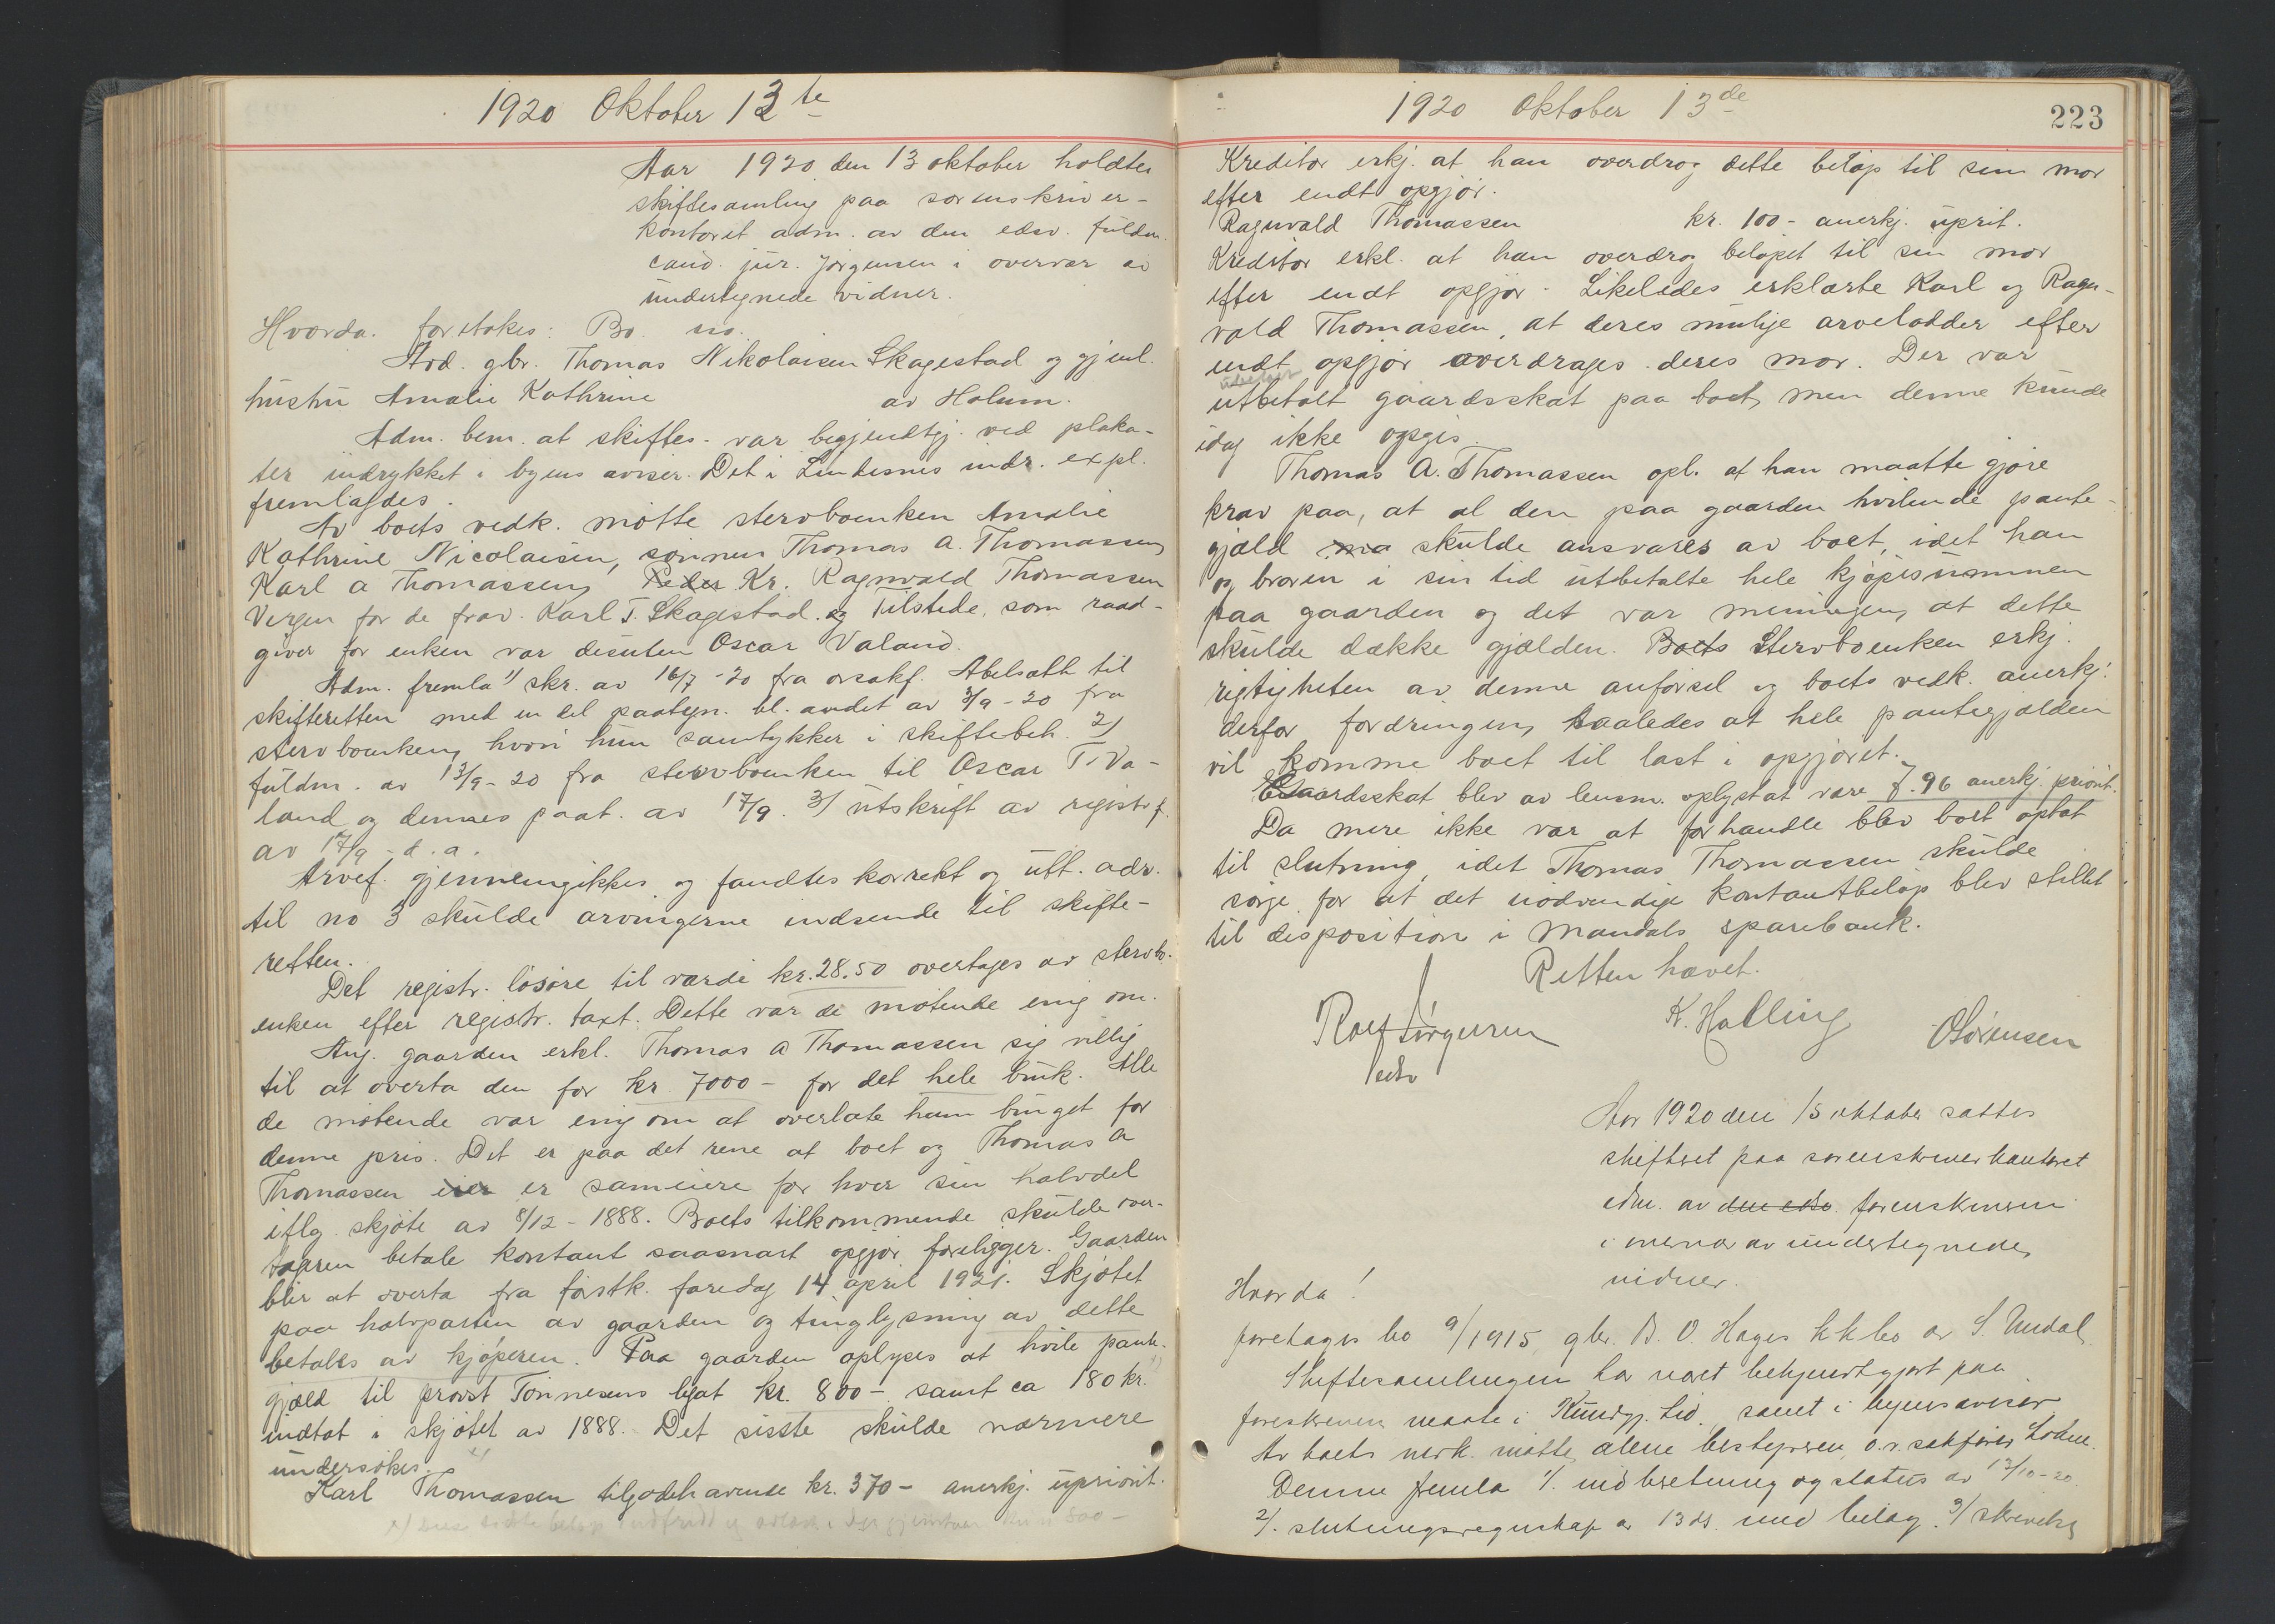 1920 Oktober 13te
Aar 1920 den 13 oktober holdtes
skiftesamling paa sorenskriver-
kontoret adm. av den edsv. fuldm.
cand. jur. Jørgensen i overvær av
undertegnede vidner.
Hvorda. foretokes: Bo. no.
Avd. gbr. Thomas Nikolaisen Skagestad og gjenl.
hustru Amalie Kathrine av Holum.
Adm. bem. at skiftes. var begjendtgj. ved plaka-
ter indrykket i byens aviser. Det i Lindesnes indr. expl.
fremlagdes.
Av boets vedk. møtte stervboenken Amalie
Kathrine Nicolaisen, sønnen Thomas A. Thomassen,
Karl A Thomassen, Peder Kr. Ragnvald Thomassen
Vergen for de frav. Karl T. Skagestad. og Tilstede, som raad-
giver for enken var desuten Oscar Valand.
Adm. fremla 1) skr. av 16/7 - 20 fra orsakf. Abelsæth til
skifteretten med en del paategn. bl. andet av 3/9 - 20 fra
stervboenken, hvori hun samtykker i skiftebeh. 2)
fuldm. av 13/9 - 20 fra stervboenken til Oscar T. Va-
land og dennes paat. av 17/9. 3) utskrift av registr.f.
av 17/9 - d. a.
Arvef. gjennemgikkes og fandtes korrekt og utt. adr.
til no 3 skulde arvingerne indsende til skifte-
retten.
Det registr. løsøre til værdi kr. 28.50 overtages av stervbo-
enken efter registr. taxt. Dette var de møtende enig om.
Ang. gaarden erkl. Thomas A Thomassen sig villig
til at overta den for kr. 7000 - for det hele bruk. Alle
de møtende var enig om at overlate ham bruget for
denne pris. Det er paa det rene at boet og Thomas A
Thomassen eier er sameiere for hver sin halvdel
iflg. skjøte av 8/12 - 1888. Boets tilkommende skulde over-
tageren betale kontant saasnart opgjør foreligger. Gaarden
blir at overta fra førstk. faredag 14 april 1921. Skjøtet
paa halvparten av gaarden og tinglysning av dette
betales av kjøperen. Paa gaarden oplyses at hvile pante-
gjæld til provst Tønnesens legat kr. 800 - samt ca 180 kr.
indtat i skjøtet av 1888. Det sisste skulde nærmere
undersøkes. x)
Karl Thomassen tilgodehavende kr. 370 - anerkj. upriorit.
1920 Oktober 13de
223
Kreditor erkj. at han overdrog dette beløp til sin mor
efter endt opgjør.
Ragnvald Thomassen kr. 100 - anerkj. uprit.
Kreditor erkl. at han overdrog beløpet til sin mor
efter endt opgjør. Likeledes erklærte Karl og Ragn-
vald Thomassen, at deres mulige arvelodder efter
endt opgjør overdrages deres mor. Der var
utbetalt gaardsskat paa boet, men denne kunde
idag ikke opgis.
Thomas A. Thomassen opl. at han maatte gjøre
krav paa, at al den paa gaarden hvilende pante-
gjæld skulde ansvares av boet, idet han
og broren i sin tid utbetalte hele kjøpesummen
paa gaarden og det var meningen, at dette
skulde dække gjælden. Boets Stervboenken erkj.
rigtigheten av denne anførsel og boets vedk. anerkj.
derfor fordringen, saaledes at hele pantegjælden
vil komme boet til last i opgjøret.
Gaardsskat blev av lensm. oplyst at være 7.96 anerkj. priorit.
Da mere ikke var at forhandle blev boet optat
til slutning, idet Thomas Thomassen skulde
sørge for at det nødvendige kontantbeløp blev stillet
til disposition i Mandals sparebank.
Retten hævet.
Rolf Jørgensen K. Halling O Sørensen
edsv
Aar 1920 den 15 oktober sattes
skifteret paa sorenskriverkontoret
adm. av den edsv. sorenskriveren
i overvær av undertegnede
vidner.
Hvorda!
foretages bo 9/1915, gbr. B. O. Hages kkbo av S. Undal
Skiftesamlingen har været bekjendtgjort paa
foreskreven maate i Kundgj. tid. samt i byens aviser.
Av boets vedk. møtte alene bestyreren, o.r. sakfører
Denne fremla 1/. indberetning og status av 12/10-20
2/. slutningsregnskap av 13 ds. med bilag. 3/ skrivelse